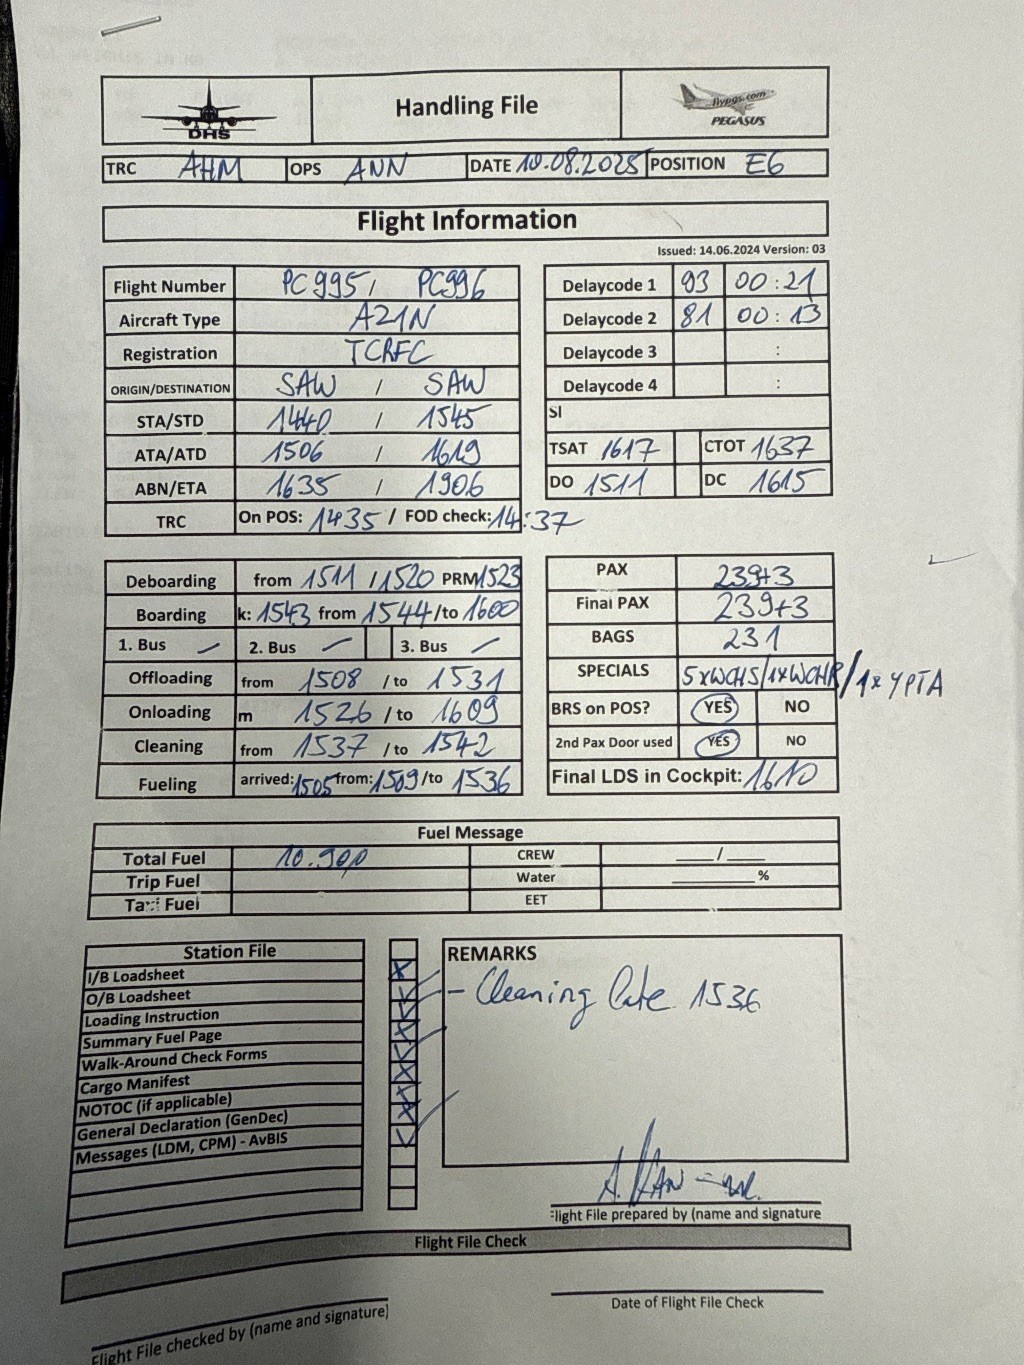 DHS
Handling File
flypgs.com
PEGASUS
TRC AHM OPS ANN DATE 10.08.2025 POSITION E6
Flight Information
Issued: 14.06.2024 Version: 03
Flight Number PC995 / PC996
Aircraft Type A21N
Registration TCRFC
ORIGIN/DESTINATION SAW / SAW
STA/STD 1440 / 1545
ATA/ATD 1506 / 1619
ABN/ETA 1635 / 1906
TRC On POS: 1435 / FOD check: 14:37
Delaycode 1 93 00:21
Delaycode 2 81 00:13
Delaycode 3 :
Delaycode 4 :
SI
TSAT 1617 CTOT 1637
DO 1511 DC 1615
Deboarding from 1511 / 1520 PRM 1523
Boarding k: 1543 from 1544 /to 1600
1. Bus — 2. Bus — 3. Bus —
Offloading from 1508 / to 1531
Onloading m 1526 / to 1609
Cleaning from 1537 / to 1542
Fueling arrived: 1505 from: 1509 /to 1536
PAX 239+3
Final PAX 239+3
BAGS 231
SPECIALS 5xWCHS/1xWCHR/1x YPTA
BRS on POS? YES NO
2nd Pax Door used YES NO
Final LDS in Cockpit: 1610
Fuel Message
Total Fuel 10.900 CREW ___/___
Trip Fuel Water ______ %
Taxi Fuel EET
Station File
I/B Loadsheet
O/B Loadsheet
Loading Instruction
Summary Fuel Page
Walk-Around Check Forms
Cargo Manifest
NOTOC (if applicable)
General Declaration (GenDec)
Messages (LDM, CPM) - AvBIS
REMARKS
- Cleaning late 1536
Flight File prepared by (name and signature
Flight File Check
Flight File checked by (name and signature)
Date of Flight File Check